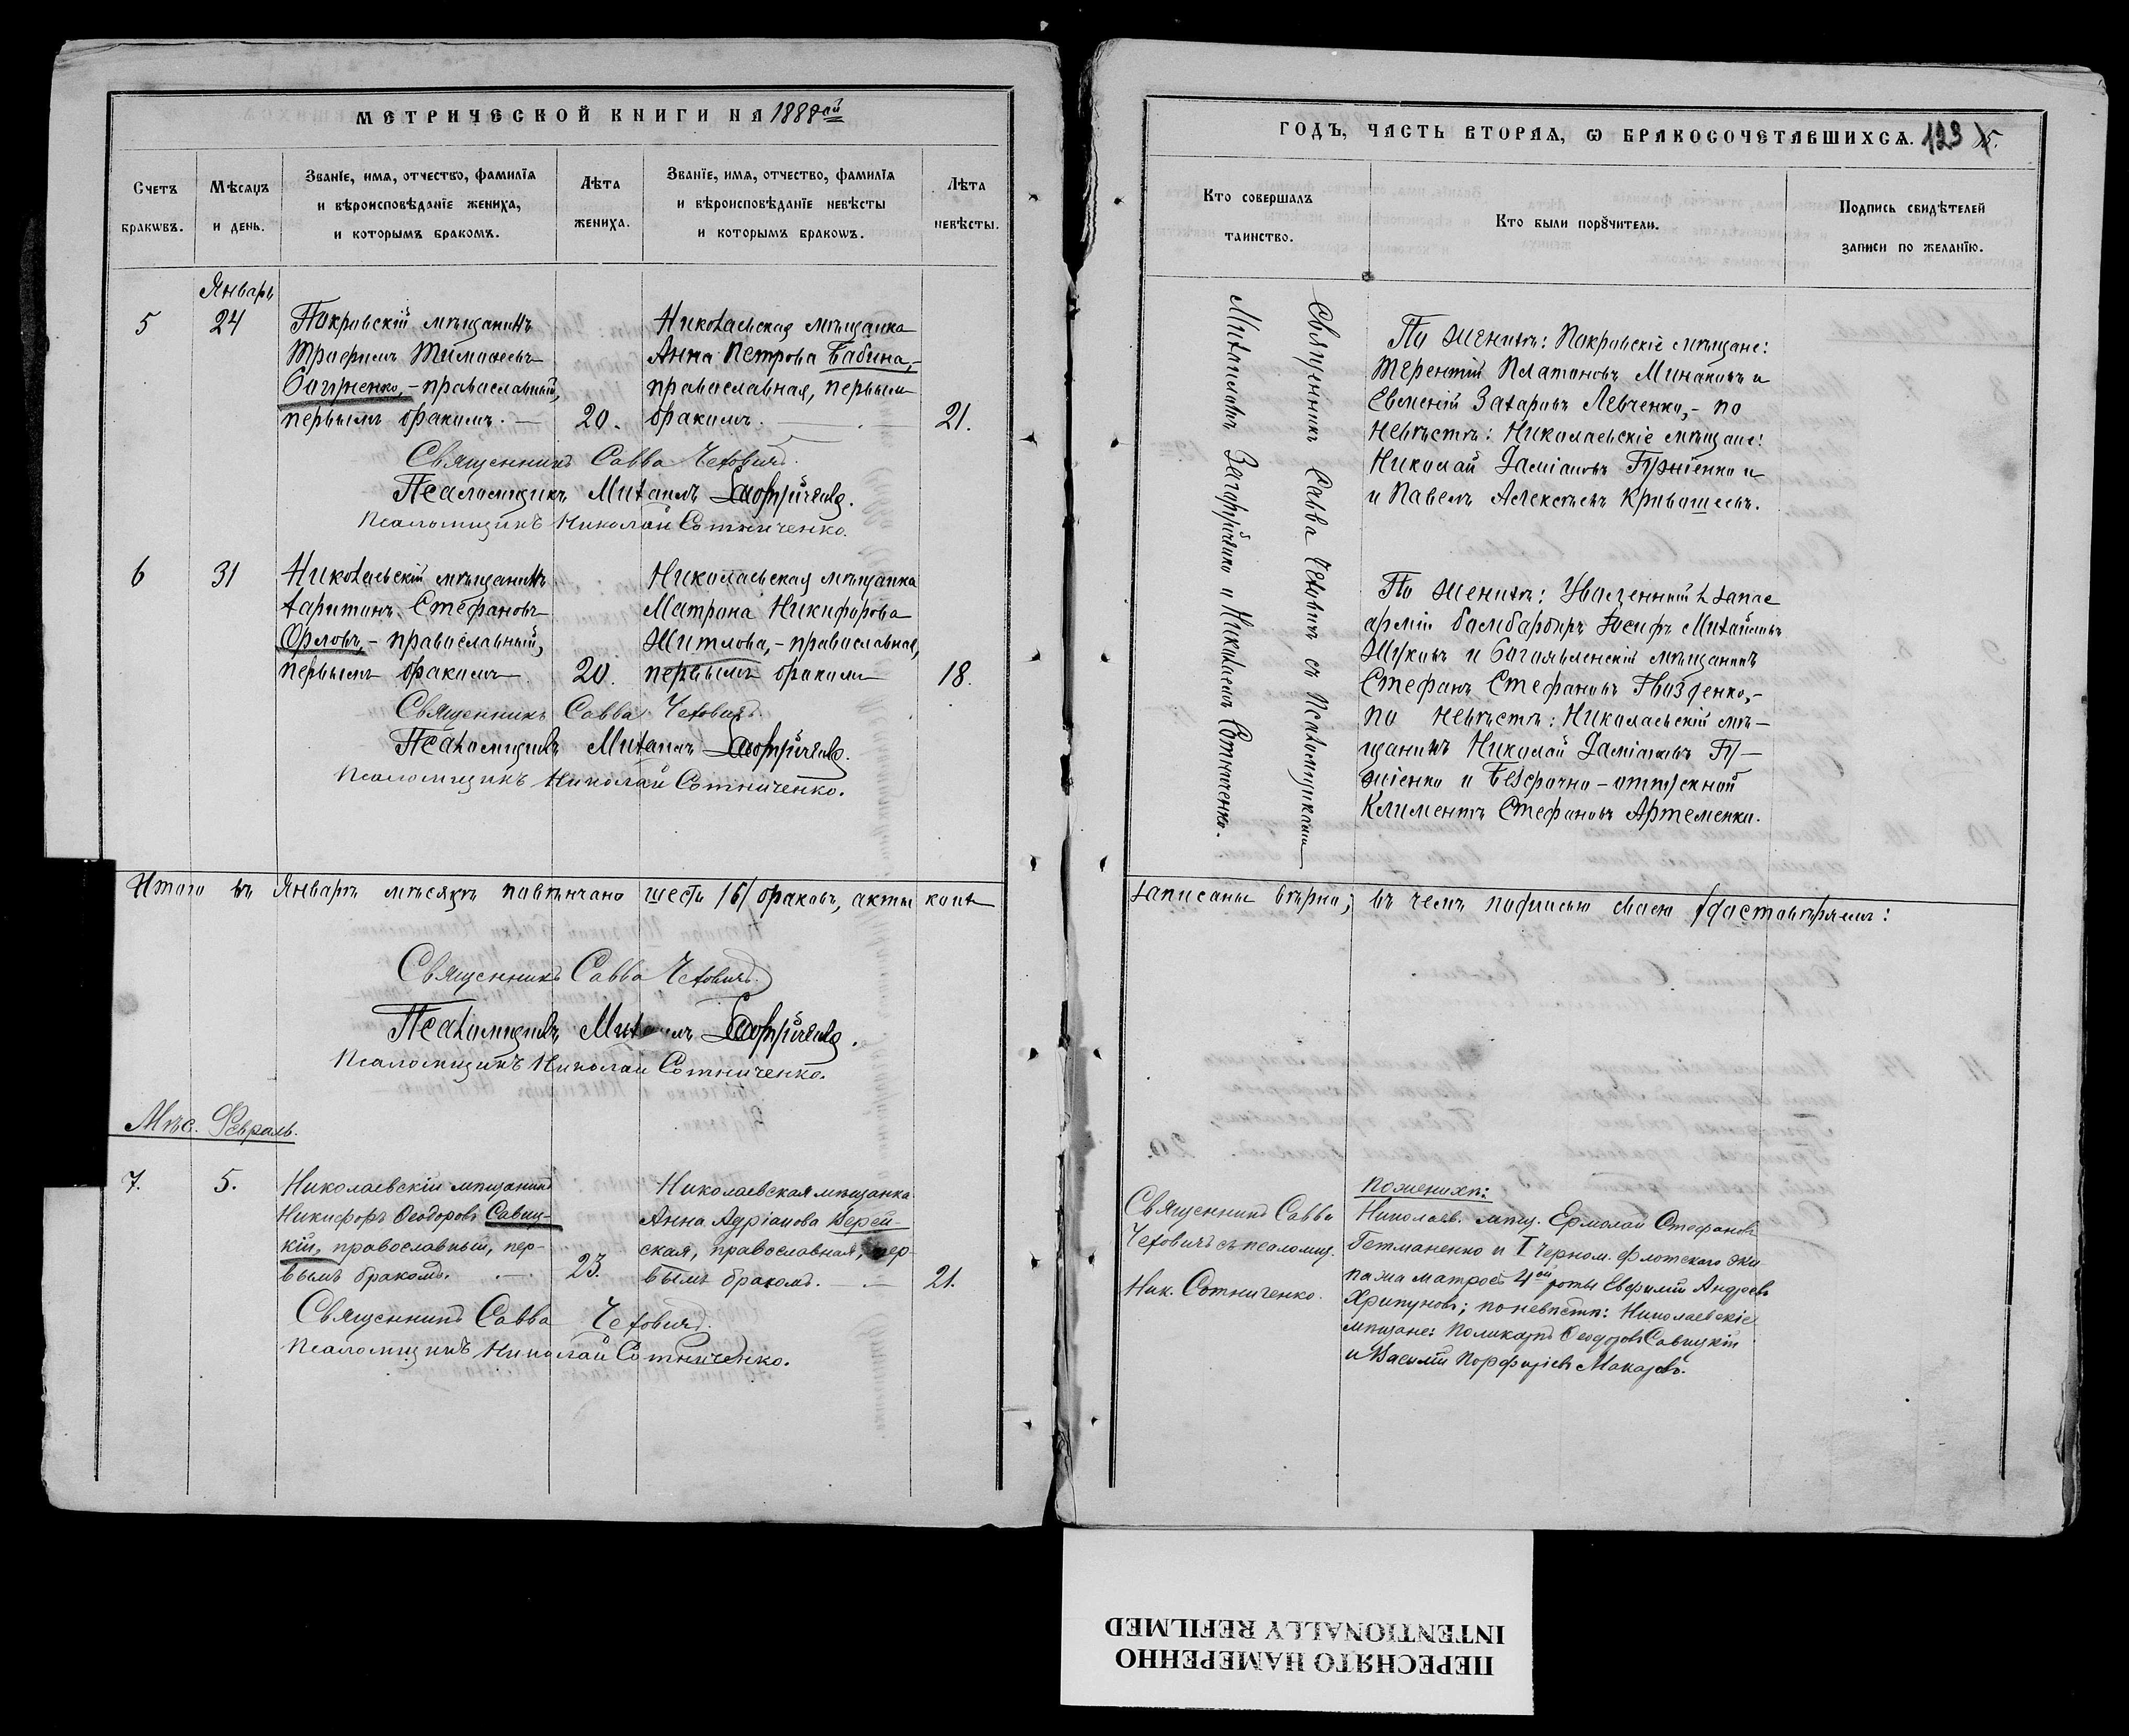 МЕТРИЧЕСКОЙ КНИГИ НА 1888ой
Счетъ браковъ.
Мѣсяцъ и день.
Званіе, имя, отчество, фамилія
и вѣроисповѣданіе жениха,
и которымъ бракомъ.
Лѣта
жениха.
Званіе, имя, отчество, фамилія
и вѣроисповѣданіе невѣсты
и которымъ бракомъ.
Лѣта
невѣсты.
Январь
5
24
Покровскій мѣщанинъ
Трофимъ Тимофеевъ
православный,
первымъ бракомъ.
20.
Николаевская мѣщанка
Анна Петрова Бабина,-
православная, первымъ
бракомъ.
21.
Священникъ Савва Чехович.
Псаломщикъ Михаилъ
Псаломщикъ Николай Сотниченко.
6
31
Николаевскій мѣщанинъ
Харитонъ Стефановъ
Орловъ,- православный,
первымъ бракомъ
20.
Николаевская мѣщанка
Матрона Никифорова
Житлова,- православная,
первымъ бракомъ
18.
Священникъ Савва Чеховичъ.
Псаломщикъ Михаилъ
Псаломщикъ Николай Сотниченко.
Итого въ Январѣ мѣсяцѣ повѣнчано шесть /6/ браковъ, акты коихъ
Священникъ Савва Чеховичъ.
Псаломщикъ Михаилъ
Псаломщикъ Николай Сотниченко.
Мѣс. Февраль.
7.
5.
Николаевскій мѣщанинъ
Никифоръ Ѳеодоровъ Савиц-
кій, православный, пер-
вымъ бракомъ.
23.
Николаевская мѣщанка
Анна Адріанова Верей-
ская, православная, пер-
вымъ бракомъ.
21.
Священникъ Савва Чеховичъ.
Псаломщикъ Николай Сотниченко.
ГОДЪ, ЧАСТЬ ВТОРАЯ, Ѡ БРАКОСОЧЕТАВШИХСЯ. 123 5.
Кто совершалъ
таинство.
Кто были порꙋчители.
Подпись свидѣтелей
записи по желанію.
Священникъ Савва Чеховичъ съ Псаломщиками
Михаиломъ и Николаемъ Сотниченко.
По женихѣ: Покровскіе мѣщане:
Терентій Платоновъ Минаковъ и
Евменій Захаровъ Левченко,- по
невѣстѣ: Николаевскіе мѣщане:
Николай Даміановъ Гужіенко и
и Павелъ Алексѣевъ Кривошеевъ.
По женихѣ: Уволенный в запас
арміи бомбардиръ Іосифъ Михайловъ
Жуковъ и Богоявленскій мѣщанинъ
Стефанъ Стефановъ Гвозденко,-
по невѣстѣ: Николаевскій мѣ-
щанинъ Николай Даміановъ Гу-
жіенко и безсрочно-отпускной
Климентъ Стефановъ Артеменко.
записаны вѣрно; въ чемъ подписью своею удостовѣряемъ:
Священникъ Савва
Чеховичъ съ псаломщ.
Ник. Сотниченко.
По женихѣ:
Николаев. мѣщ. Ермолай Стефановъ
Гетманенко и I Черном. флотскаго эки-
пажа матросъ 4ой роты Евфимій Андреевъ
Хрипуновъ; по невѣстѣ: Николаевскіе
мѣщане: Поликарпъ Ѳеодоровъ Савицкій
и Василій Порфиріевъ Макаровъ.
ПЕРЕСНЯТО НАМЕРЕННО
INTENTIONALLY REFILMED